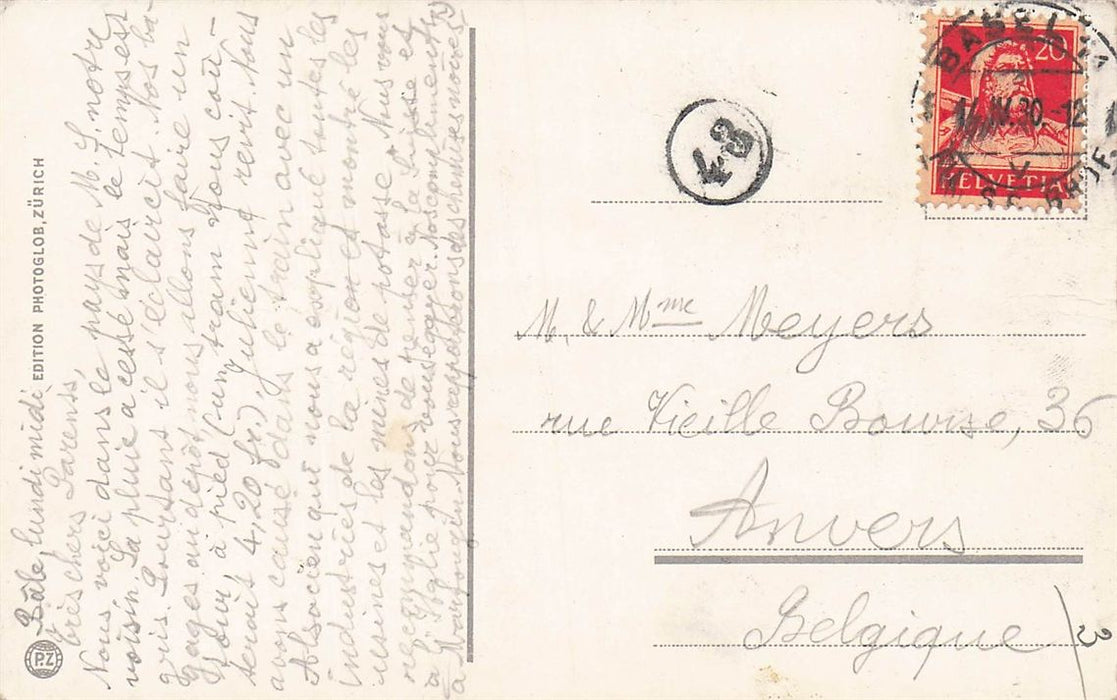 Bâle, lundi midi
très chers Parents,
Nous voici dans le pays de M. S. notre
voisin. La pluie a cessé mais le temps est
gris. Pourtant il s'éclaircit. Nos ba-
gages au dépôt nous allons faire un
tour à pied (un tram nous coû-
terait 4,20 fr.). Julienne revit. Nous
avons causé dans le train avec un
Alsacien qui nous a expliqué toutes les
industries de la région et montré les
usines et les mines de potasse. Nous vous
recommandons de penser à la Suisse et
à pour voyager. Nos compliments
à Nous rapportons des chemises noires
EDITION PHOTOGLOB, ZÜRICH
PZ
43
BASEL
IV.30.-12
20
HELVETIA
M. & Mme Meyers
rue Vieille Bourse, 36
Anvers
Belgique
3